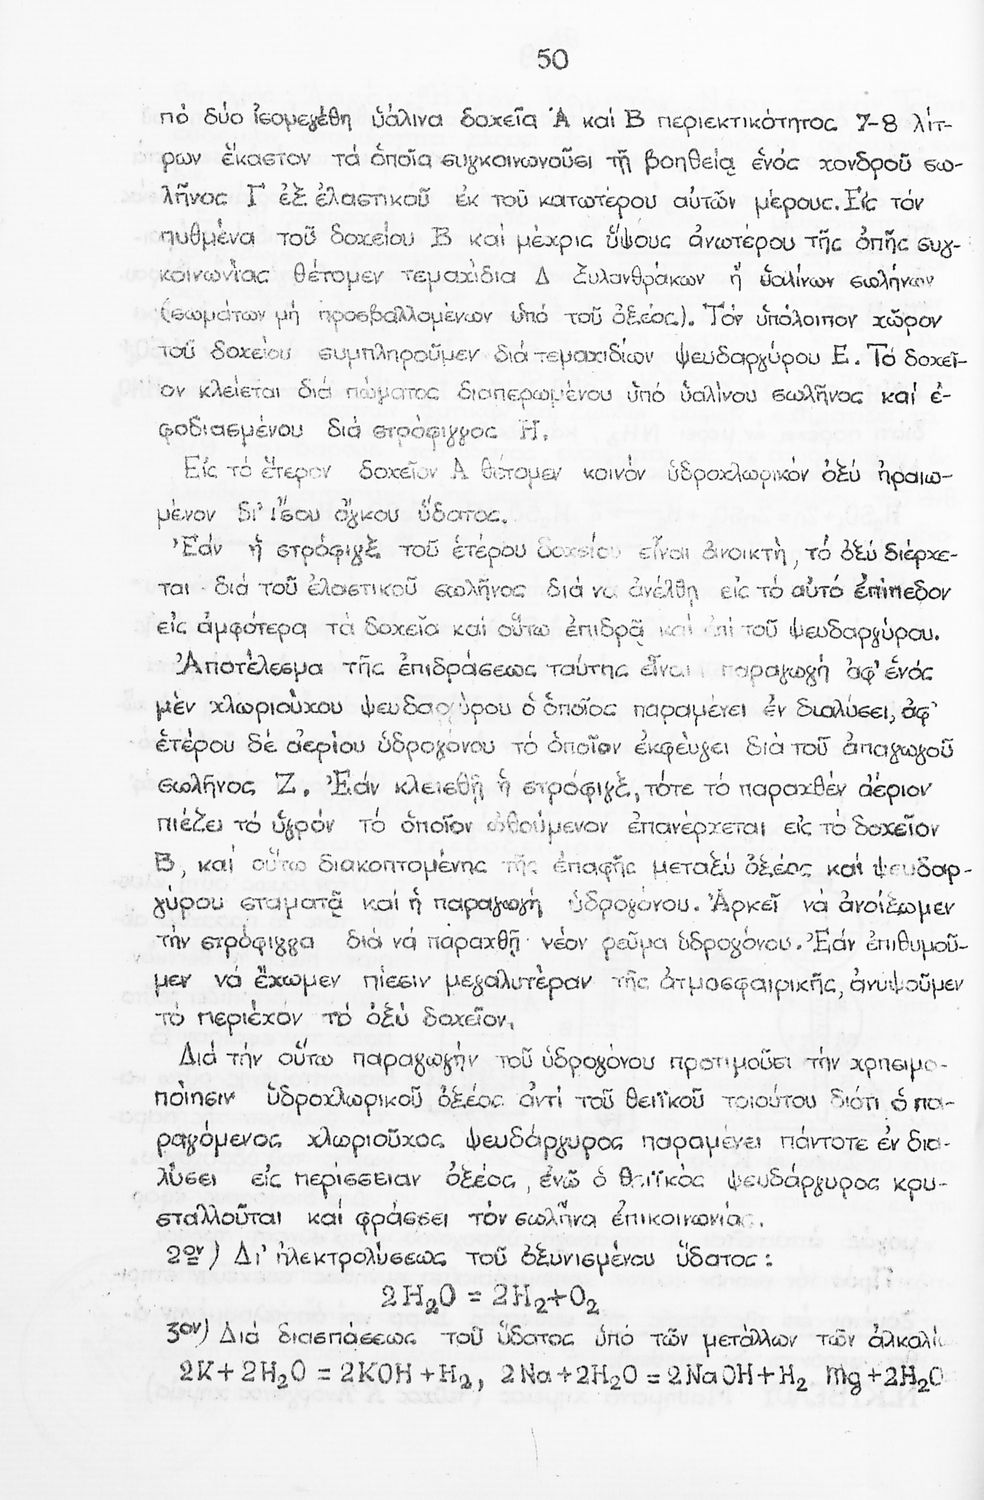 50
πό δύο ἰσομεγέθη ὑάλινα δοχεῖα Ἀ καί Β περιεκτικότητος 7-8 λίτ-
ρων ἕκαστον τά ὁποῖα συγκοινωνοῦσι τῇ βοηθείᾳ ἑνός χονδροῦ σω-
λῆνος Γ ἐξ ἐλαστικοῦ ἐκ τοῦ κατωτέρου αὐτῶν μέρους. Εἰς τόν
πυθμένα τοῦ δοχείου Β καί μέχρις ὕψους ἀνωτέρου τῆς ὀπῆς συγ-
κοινωνίας θέτομεν τεμαχίδια Δ ξυλανθράκων ἤ ὑαλίνων σωλήνων
(σωμάτων μή προσβαλλομένων ὑπό τοῦ ὀξέος). Τόν ὑπόλοιπον χῶρον
τοῦ δοχείου συμπληροῦμεν διά τεμαχιδίων ψευδαργύρου Ε. Τό δοχεῖ-
ον κλείεται διά πώματος διαπερωμένου ὑπό ὑαλίνου σωλῆνος καί ἐ-
φοδιασμένου διά στρόφιγγος Η.
Εἰς τό ἕτερον δοχεῖον Α θέτομεν κοινόν ὑδροχλωρικόν ὀξύ ἠραιω-
μένον δι' ἴσου ὄγκου ὕδατος.
Ἐάν ἡ στρόφιγξ τοῦ ἑτέρου δοχείου εἶναι ἀνοικτή, τό ὀξύ διέρχε-
ται διά τοῦ ἐλαστικοῦ σωλῆνος διά νά ἀνέλθῃ εἰς τό αὐτό ἐπίπεδον
εἰς ἀμφότερα τά δοχεῖα καί οὕτω ἐπιδρᾷ καί ἐπί τοῦ ψευδαργύρου.
Ἀποτέλεσμα τῆς ἐπιδράσεως ταύτης εἶναι παραγωγή ἀφ' ἑνός
μέν χλωριούχου ψευδαργύρου ὁ ὁποῖος παραμένει ἐν διαλύσει, ἀφ'
ἑτέρου δέ ἀερίου ὑδρογόνου τό ὁποῖον ἐκφεύγει διά τοῦ ἀπαγωγοῦ
σωλῆνος Ζ. Ἐάν κλεισθῇ ἡ στρόφιγξ, τότε τό παραχθέν ἀέριον
πιέζει τό ὑγρόν τό ὁποῖον ὠθούμενον ἐπανέρχεται εἰς τό δοχεῖον
Β, καί οὕτω διακοπτομένης τῆς ἐπαφῆς μεταξύ ὀξέος καί ψευδαρ-
γύρου σταματᾷ καί ἡ παραγωγή ὑδρογόνου. Ἀρκεῖ νά ἀνοίξωμεν
τήν στρόφιγγα διά νά παραχθῇ νέον ρεῦμα ὑδρογόνου. Ἐάν ἐπιθυμοῦ-
μεν νά ἔχωμεν πίεσιν μεγαλυτέραν τῆς ἀτμοσφαιρικῆς, ἀνυψοῦμεν
τό περιέχον τό ὀξύ δοχεῖον.
Διά τήν οὕτω παραγωγήν τοῦ ὑδρογόνου προτιμοῦσι τήν χρησιμο-
ποίησιν ὑδροχλωρικοῦ ὀξέος ἀντί τοῦ θειϊκοῦ τοιούτου διότι ὁ πα-
ραγόμενος χλωριοῦχος ψευδάργυρος παραμένει πάντοτε ἐν δια-
λύσει εἰς περίσσειαν ὀξέος, ἐνῶ ὁ θειϊκός ψευδάργυρος κρυ-
σταλλοῦται καί φράσσει τόν σωλῆνα ἐπικοινωνίας.
2ον) Δι' ἠλεκτρολύσεως τοῦ ὀξυνισμένου ὕδατος:
2H₂O = 2H₂+O₂
3ον) Διά διασπάσεως τοῦ ὕδατος ὑπό τῶν μετάλλων τῶν ἀλκαλί
2K+2H₂O = 2KOH+H₂, 2Na+2H₂O = 2NaOH+H₂ Mg+2H₂O